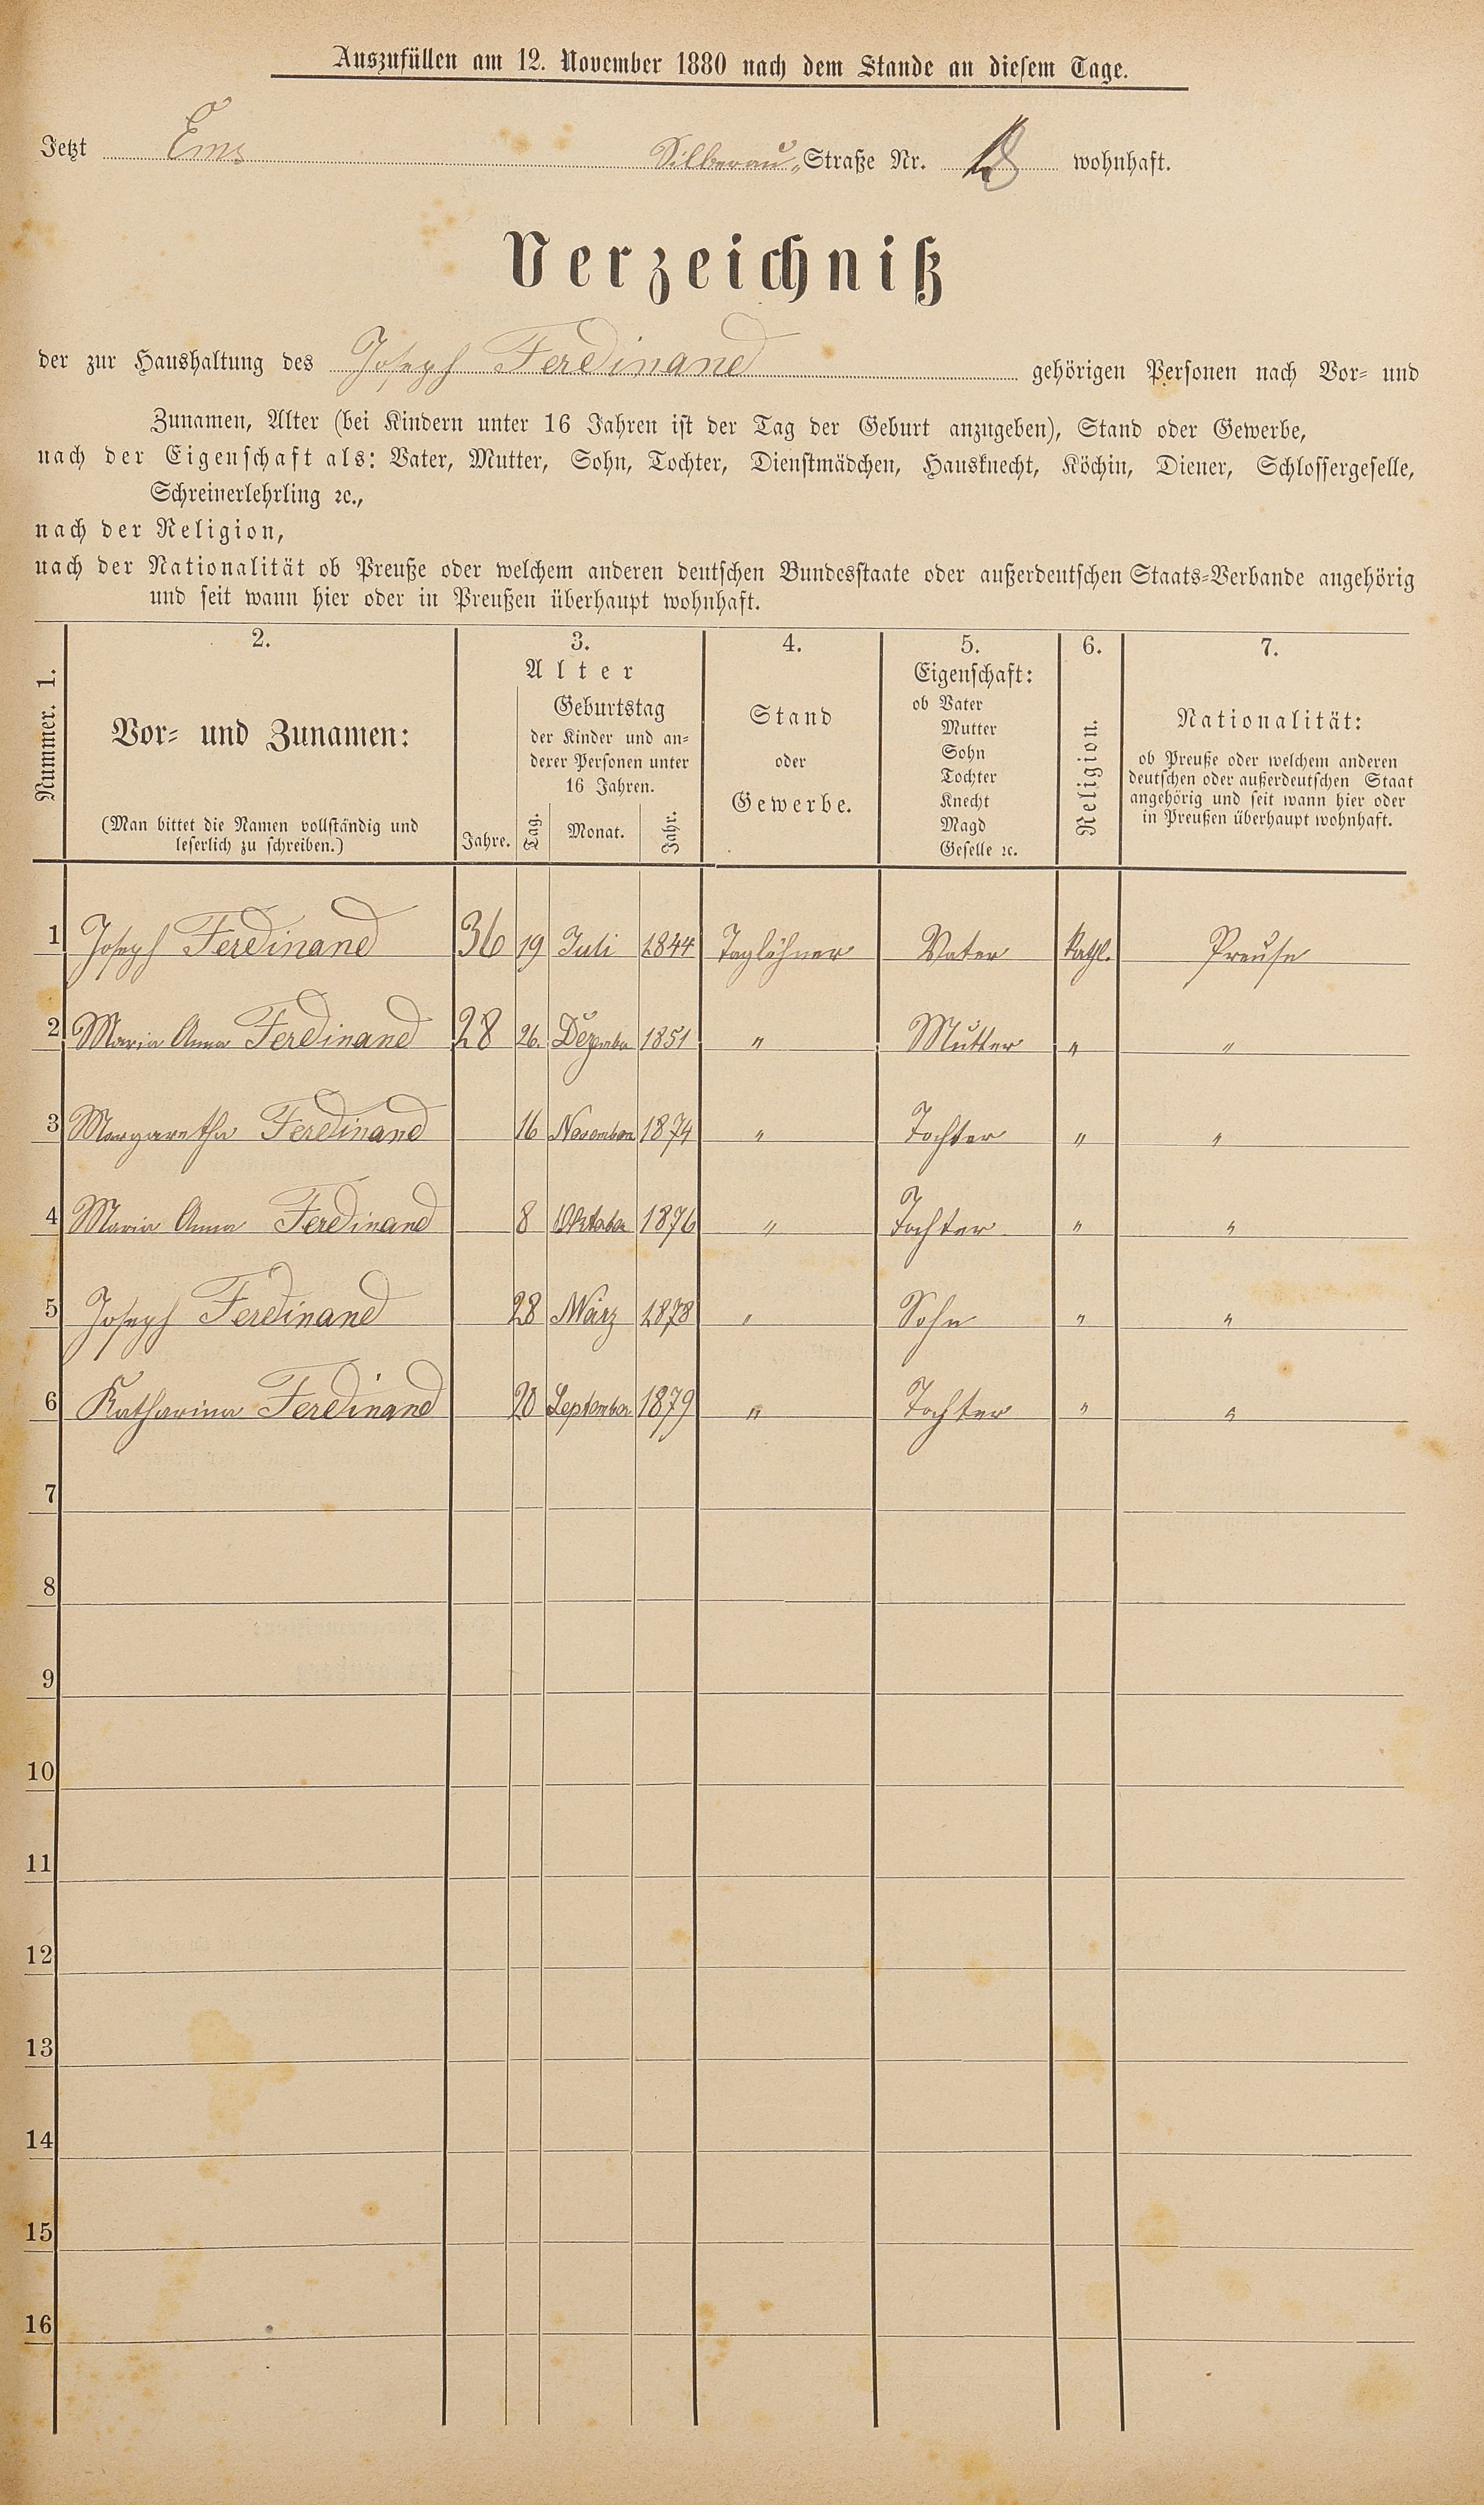 Auszufüllen am 12. November 1880 nach dem Stande an diesem Tage.
Jetzt Ems Silberau„ Straße Nr. wohnhaft.
Verzeichniß
der zur Haushaltung des Joseph Ferdinand gehörigen Personen nach Vor- und
Zunamen, Alter (bei Kindern unter 16 Jahren ist der Tag der Geburt anzugeben), Stand oder Gewerbe,
nach der Eigenschaft als: Vater, Mutter, Sohn, Tochter, Dienstmädchen, Hausknecht, Köchin, Diener, Schlossergeselle,
Schreinerlehrling ꝛc.,
nach der Religion,
nach der Nationalität ob Preuße oder welchem anderen deutschen Bundesstaate oder außerdeutschen Staats-Verbande angehörig
und seit wann hier oder in Preußen überhaupt wohnhaft.
Nummer. 1.
2.
Vor- und Zunamen:
(Man bittet die Namen vollständig und
leserlich zu schreiben.)
3.
Alter
Jahre.
Geburtstag
der Kinder und an-
derer Personen unter
16 Jahren.
Tag. Monat. Jahr.
4.
Stand
oder
Gewerbe.
5.
Eigenschaft:
ob Vater
Mutter
Sohn
Tochter
Knecht
Magd
Geselle ꝛc.
6.
Religion.
7.
Nationalität:
ob Preuße oder welchem anderen
deutschen oder außerdeutschen Staat
angehörig und seit wann hier oder
in Preußen überhaupt wohnhaft.
1 Joseph Ferdinand 36 19 Juli 1844 Taglöhner Vater Kathl. Preuse
2 Maria Anna Ferdinand 28 26. Dezember 1851 " Mutter " "
3 Margaretha Ferdinand 16 November 1874 " Tochter " "
4 Maria Anna Ferdinand 8 Oktober 1876 " Tochter " "
5 Joseph Ferdinand 28 März 1878 " Sohn " "
6 Katharina Ferdinand 20 September 1879 " Tochter " "
7
8
9
10
11
12
13
14
15
16